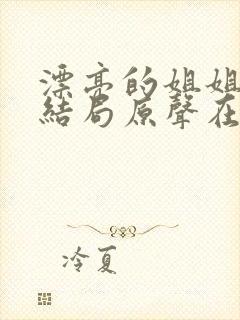 漂亮的姐姐
結局原聲在
冷夏